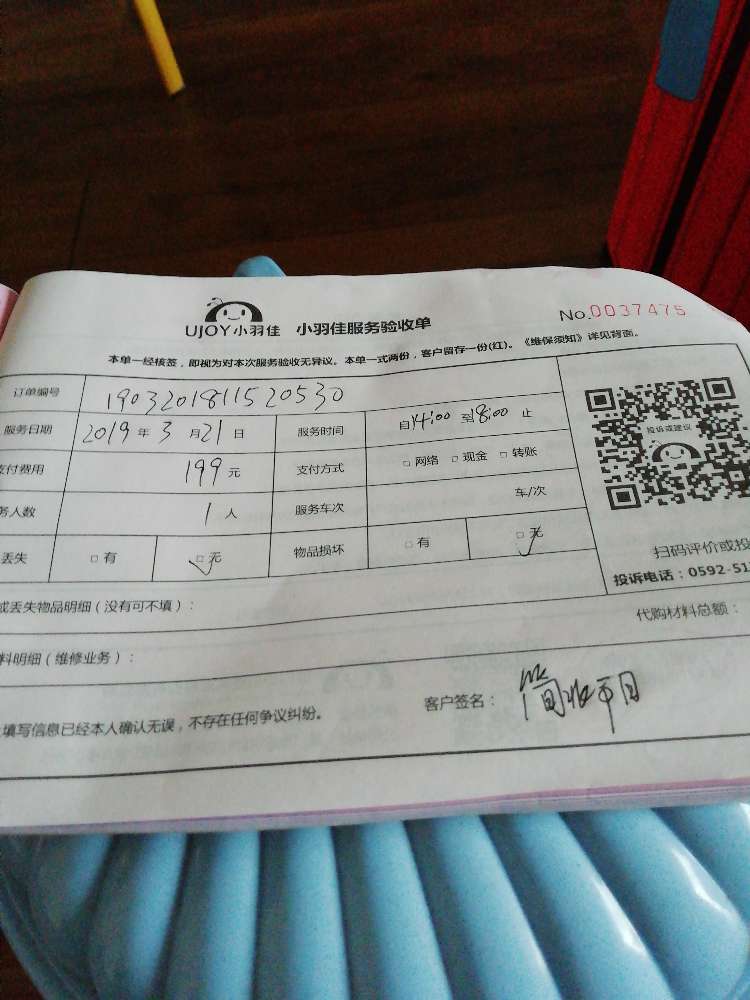 UJOY小羽佳 小羽佳服务验收单 No.0037475
本单一经核签，即视为对本次服务验收无异议。本单一式两份，客户留存一份(红)。《维保须知》详见背面。
订单编号 1903201811520530
服务日期 2019 年 3 月 21 日 服务时间 自14:00 至18:00 止
支付费用 199 元 支付方式 □ 网络 □ 现金 □ 转账
务人数 1 人 服务车次 车/次
丢失 □ 有 □ 无 物品损坏 □ 有 □ 无
投诉或建议
扫码评价或投
投诉电话：0592-51
或丢失物品明细（没有可不填）：
代购材料总额：
料明细（维修业务）：
填写信息已经本人确认无误，不存在任何争议纠纷。 客户签名：